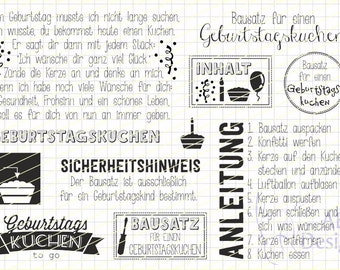 Geburtstag musste ich nicht lange suchen,
wusste, du bekommst heute einen Kuchen.
Er sagt dir dann mit jedem Stück:
"Ich wünsche dir ganz viel Glück."
Zünde die Kerze an und denke an mich,
denn ich habe noch viele Wünsche für dich.
Gesundheit, Frohsinn und ein schönes Leben,
soll es für dich im neuen Jahr geben.
GEBURTSTAGSKUCHEN
SICHERHEITSHINWEIS
Der Bausatz ist ausschließlich
für ein Geburtstagskind bestimmt.
Geburtstags
KUCHEN
to go
BAUSATZ
FÜR EINEN
GEBURTSTAGSKUCHEN
Bausatz für einen
Geburtstagskuchen
INHALT
Bausatz
für einen
Geburtstags
kuchen
ANLEITUNG
1. Bausatz auspacken
2. Konfetti werfen
3. Kerze auf den Kuchen
stecken und anzünden
4. Luftballon aufblasen
5. Kerze auspusten
6. Augen schließen und
wünschen
7. Kerze entfernen
8. Kuchen essen